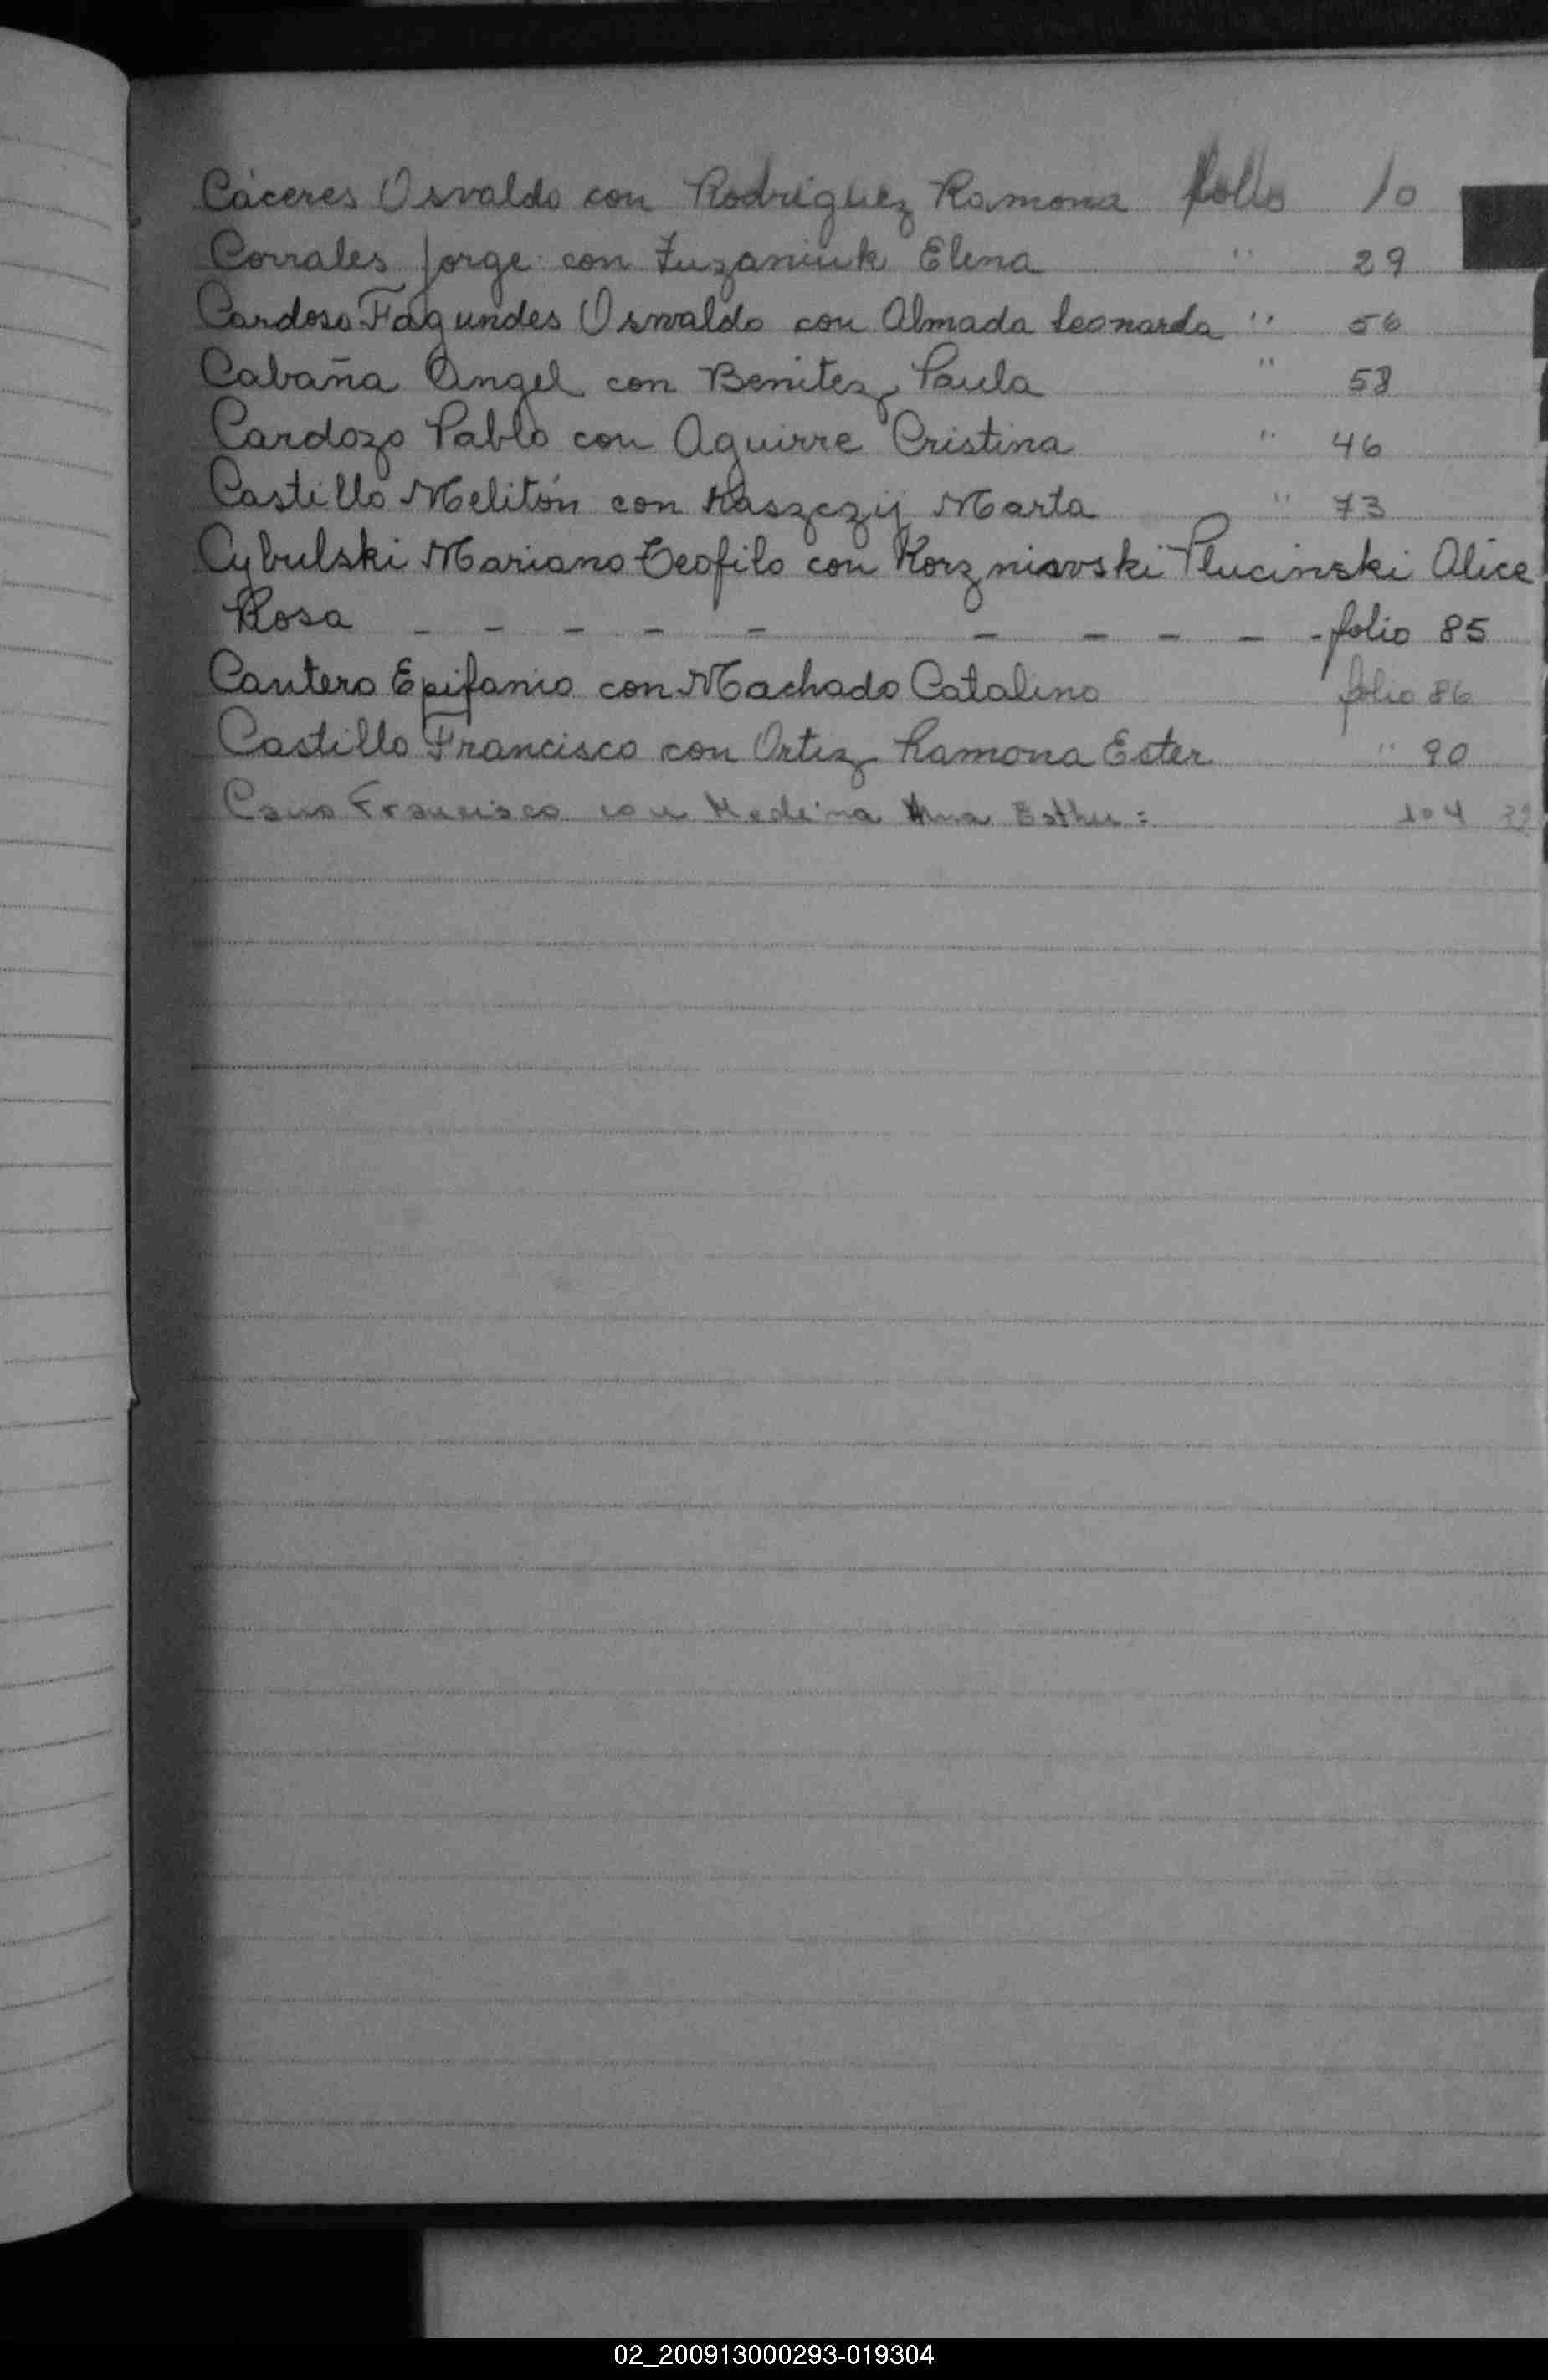 Cáceres Osvaldo con Rodriguez Ramona folio 10
Corrales Jorge con Zuzaniuk Elena " 29
Cardoso Fagundes Osvaldo con Almada Leonarda " 56
Cabaña Angel con Benitez Paula " 58
Cardozo Pablo con Aguirre Cristina " 46
Castillo Melitón con Kaszczij Marta " 73
Cybulski Mariano Teofilo con Korzniovski Plucinski Alice
Rosa - - - - - - - - - - folio 85
Cantero Epifanio con Machado Catalina folio 86
Castillo Francisco con Ortiz Ramona Ester " 90
Cano Francisco con Medina Ana Esther : 104
02_200913000293-019304